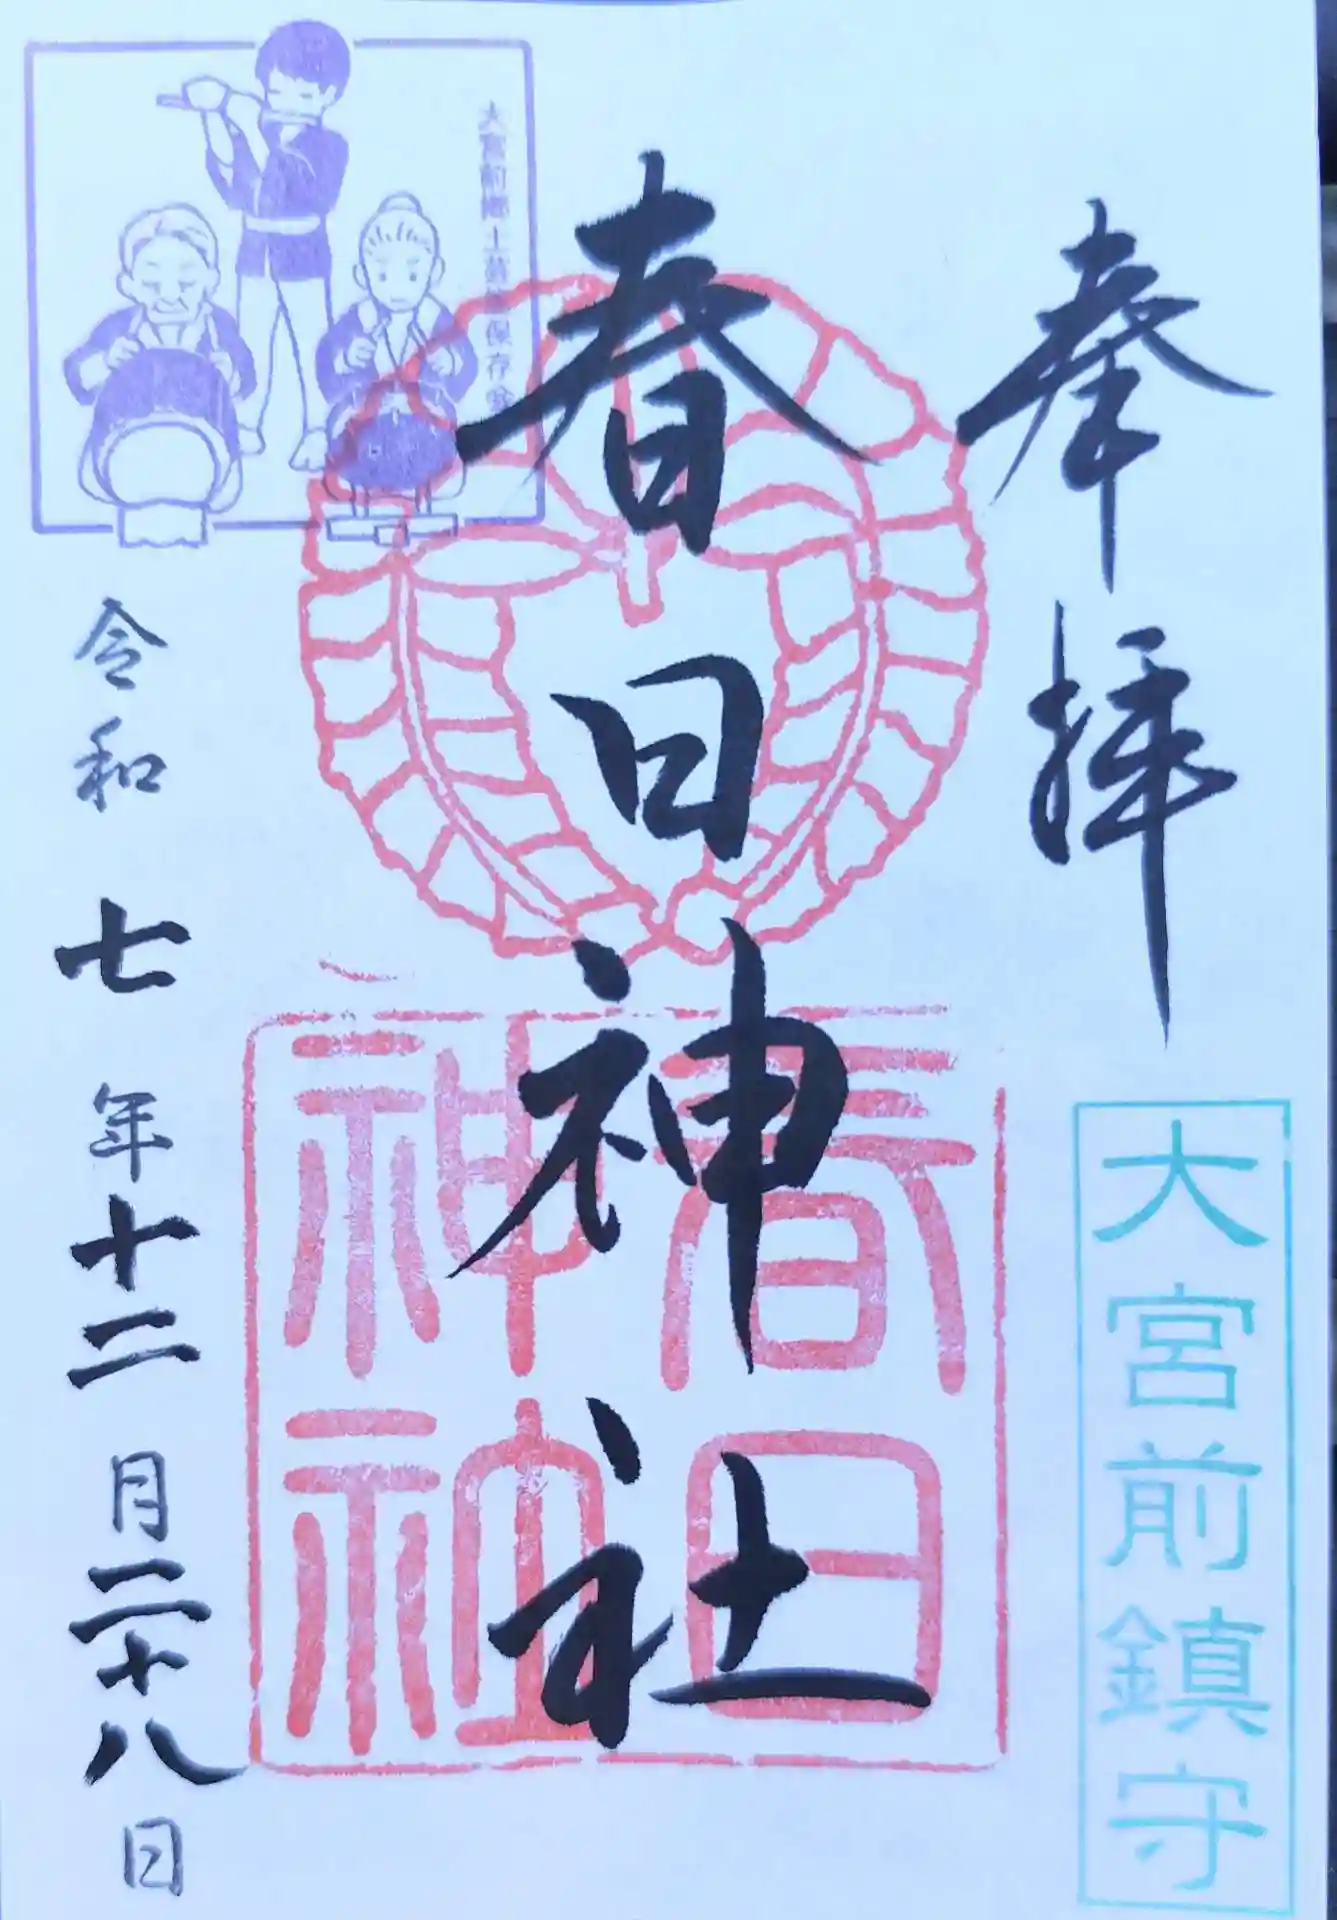 奉拝
大宮前鎮守
春日神社
春日
神社
大宮前郷土芸能保存会
令和七年十二月二十八日